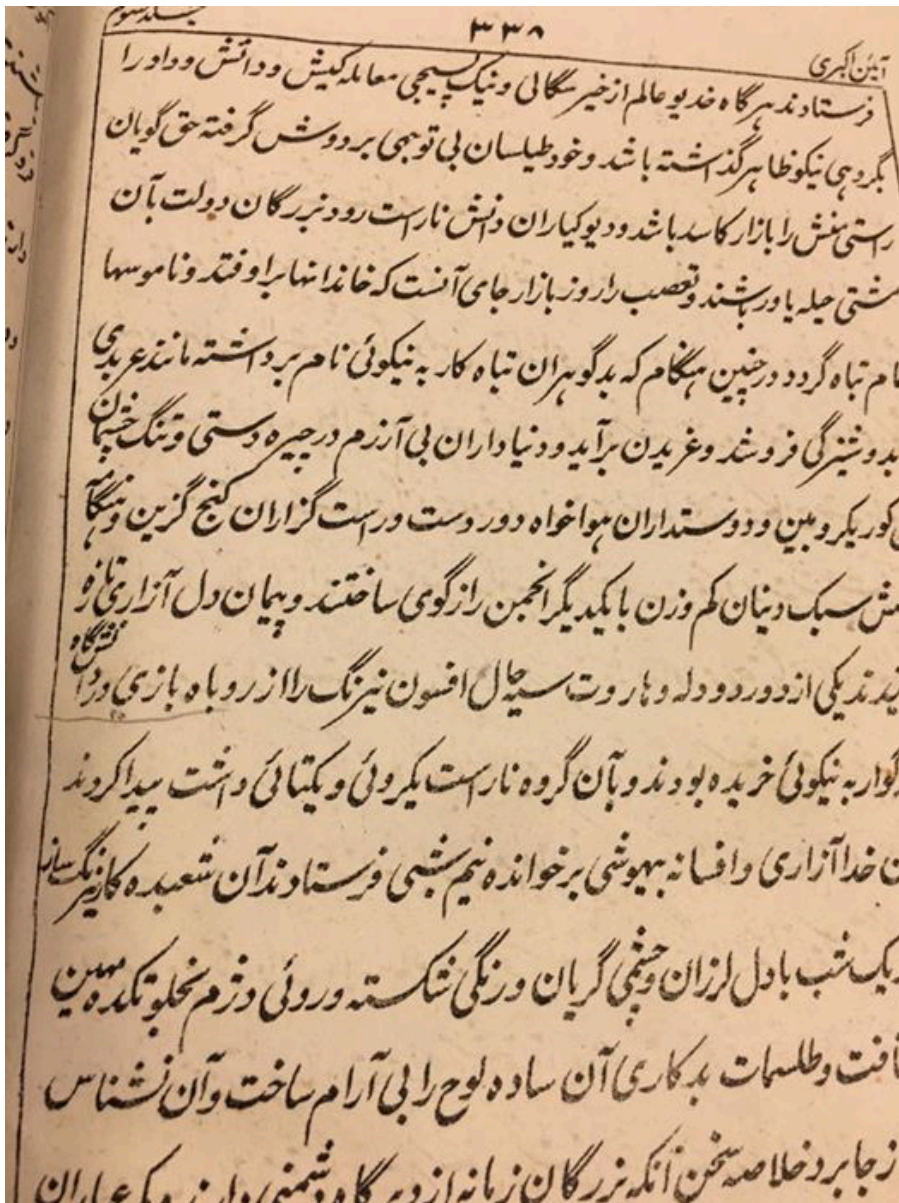 جلد سوم
۳۳۸
آئین اکبری
فرستادند هرگاه خدیو عالم از خیر سگالی و نیک بسیجی معامله کیش و دانش و داد را
بگروهی نیکو ظاهر گذاشته باشد و خود طیلسان بی توجهی بر دوش گرفته حق گویان
راستی منش را بازار کاسد باشد و دیو کیاران دانش نارست رو و بزرگان دولت بآن
مشتی حیله یاور باشند و تعصب را روز بازار جای آنست که خاندانها براوفتد و ناموسها
تباه گردد در چنین هنگام که بدگوهران تباه کار به نیکوئی نام برداشته مانند عربدی
بدوشیزگی فروشد و غریدن برآید و دنیاداران بی آزرم در چیره دستی و تنگ چشمان
کور یکرو بین و دوستداران هواخواه دور دست و راست گزاران کنج گزین و هنگامه
سبک دینان کم وزن با یکدیگر انجمن رازگوی ساختند و پیمان دل آزاری تازه
یکی از دور دو دله و هاروت سیه چال افسون نیرنگ را از روباه بازی در دانشگاه
به نیکوئی خریده بودند و بآن گروه ناراست یکروئی و یکتائی داشت پیدا کردند
خدا آزاری و افسانه بیهوشی برخوانده نیم شبی فرستادند آن شعبده کار نیرنگ ساز
یک شب با دل لرزان و چشمی گریان و رنگی شکسته و روئی دژم بخلوتکده مهین
و طلسمات بدکاری آن ساده لوح را بی آرام ساخت و آن نشناس
از جا برد خلاصه سخن آنکه بزرگان زمانه از دیرگاه دشمنی دارند و